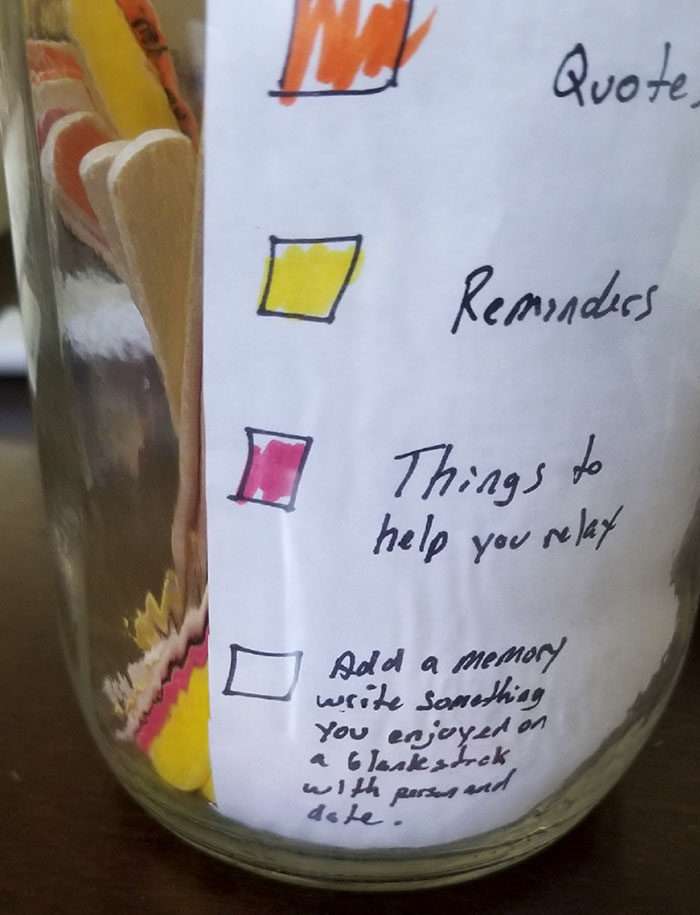 Quote
Reminders
Things to
help you relax
Add a memory
write something
you enjoyed on
a blank stick
with person and
date.